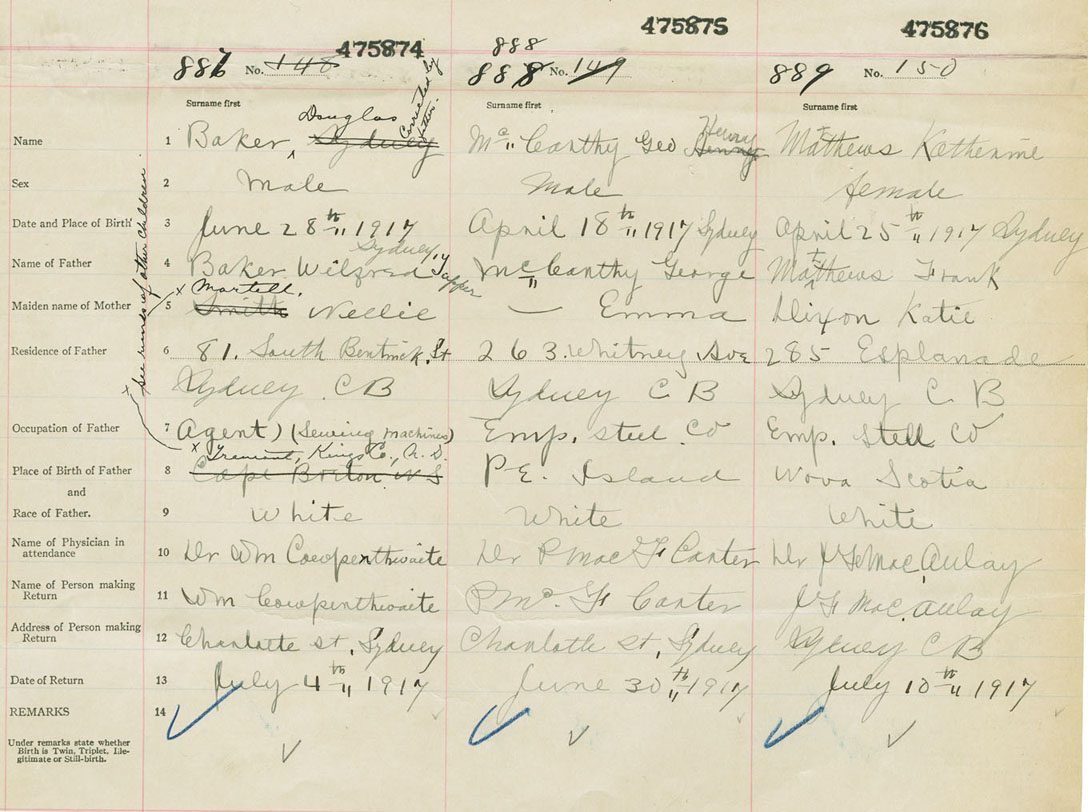 475874 475875 476876
887 No. 148 888 888 No. 149 889 No. 150
Surname first Surname first Surname first
Douglas Corrected by letter.
Name 1 Baker, Sydney Mc Carthy Geo Henry Mathews Katherine
Sex 2 Male Male female
Date and Place of Birth 3 June 28th 1917 Sydney April 18th 1917 Sydney April 25th 1917 Sydney
Name of Father 4 Baker Wilfred Tupper McCarthy George Mathews Frank
x Martell.
Maiden name of Mother 5 Smith Nellie — Emma Dixon Katie
Residence of Father 6 81. South Bentinck. St 263. Whitney Ave 285 Esplanade
Sydney CB Sydney C B Sydney C B
Occupation of Father 7 Agent) (Sewing machines) Emp. Steel Co Emp. Stell Co
x Tremont, Kings Co.,
Place of Birth of Father 8 Cape Breton N S P E. Island Nova Scotia
and
Race of Father. 9 White White White
Name of Physician in attendance 10 Dr Wm Cowpenthwaite Dr P MacF Carter Dr J F MacAulay
Name of Person making Return 11 Wm Cowpenthwaite P Mc. F Carter J F MacAulay
Address of Person making Return 12 Charlotte St, Sydney Charlotte St, Sydney Sydney C B
Date of Return 13 July 4th 1917 June 30th 1917 July 10th 1917
REMARKS 14
Under remarks state whether
Birth is Twin, Triplet, Ille-
gitimate or Still-birth.
x See of other children